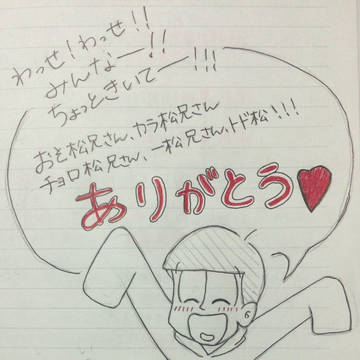 わっせ!わっせ!!
みんなー!!
ちょっときいてー!!!
おそ松兄さん、カラ松兄さん
チョロ松兄さん、一松兄さん、トド松!!!
ありがとう
6